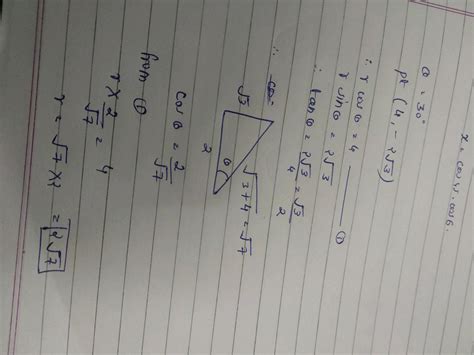 θ = 30°
pt (4, -2√3)
∴ r cos θ = 4 ——— ①
r sin θ = 2√3
∴ tan θ = 2√3/4 = √3/2
∴
√3
2
θ
√3+4 = √7
cos θ = 2/√7
from ①
r × 2/√7 = 4
r = √7 × 2 = 2√7